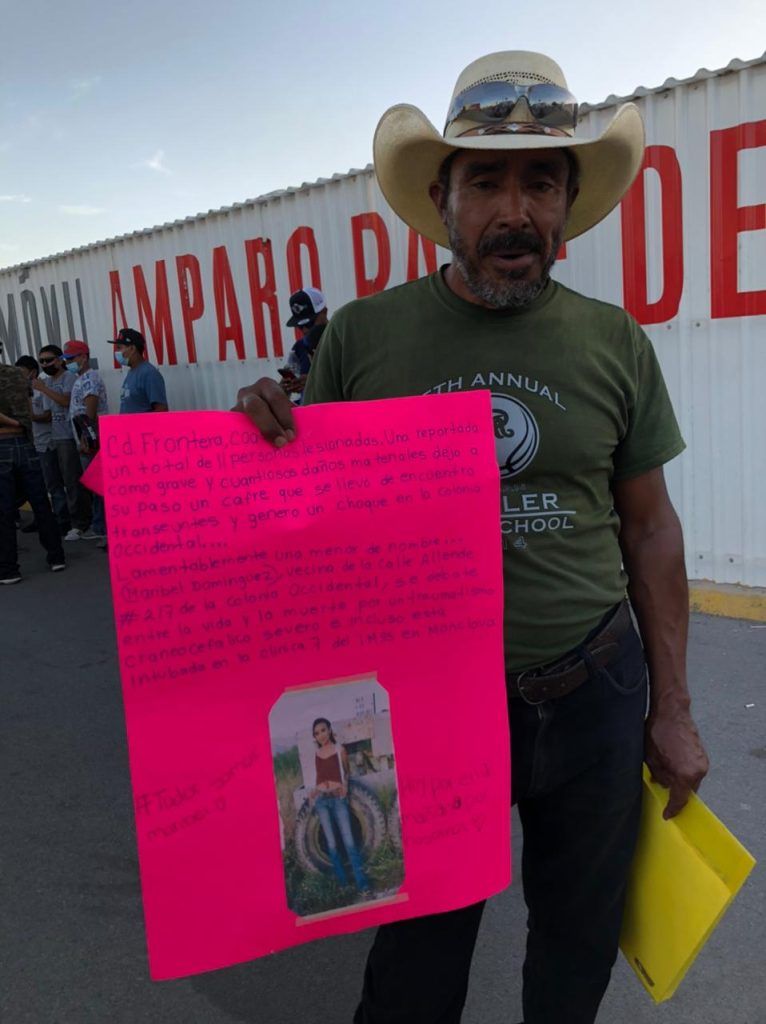 MÓVIL AMPARO PA DE
TH ANNUAL
LER
SCHOOL
14
Cd. Frontera, COA
un total de 11 personas lesionadas. Una reportada
como grave y cuantiosos daños materiales dejo a
su paso un cafre que se llevo de encuentro
transeuntes y genero un choque en la colonia
Occidental....
Lamentablemente una menor de nombre...
(Maribel Dominguez), vecina de la calle Allende
#217 de la colonia Occidental, se debate
entre la vida y la muerte por un traumatismo
craneocefalico severo e incluso esta
intubada en la clinica 7 del IMSS en Monclova
#Todos somos
maribel
Hoy por el
mañana por
nosotros